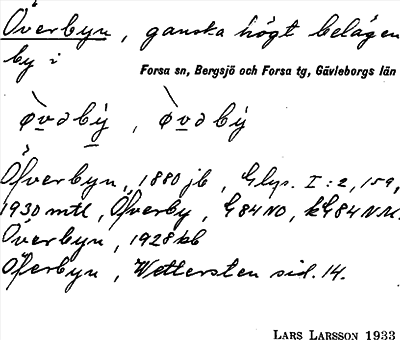 Överbyn, ganska högt belägen
by i
Forsa sn, Bergsjö och Forsa tg, Gävleborgs län
ø̀vəbý, ø̀vəbý
Öfverbyn, 1880 jb, Glys. I:2, 159,
1930 mtl, Öfverby, G84NO, kG84NM.
Överbyn, 1928 kb
Öferbyn, Wettersten sid. 14.
LARS LARSSON 1933